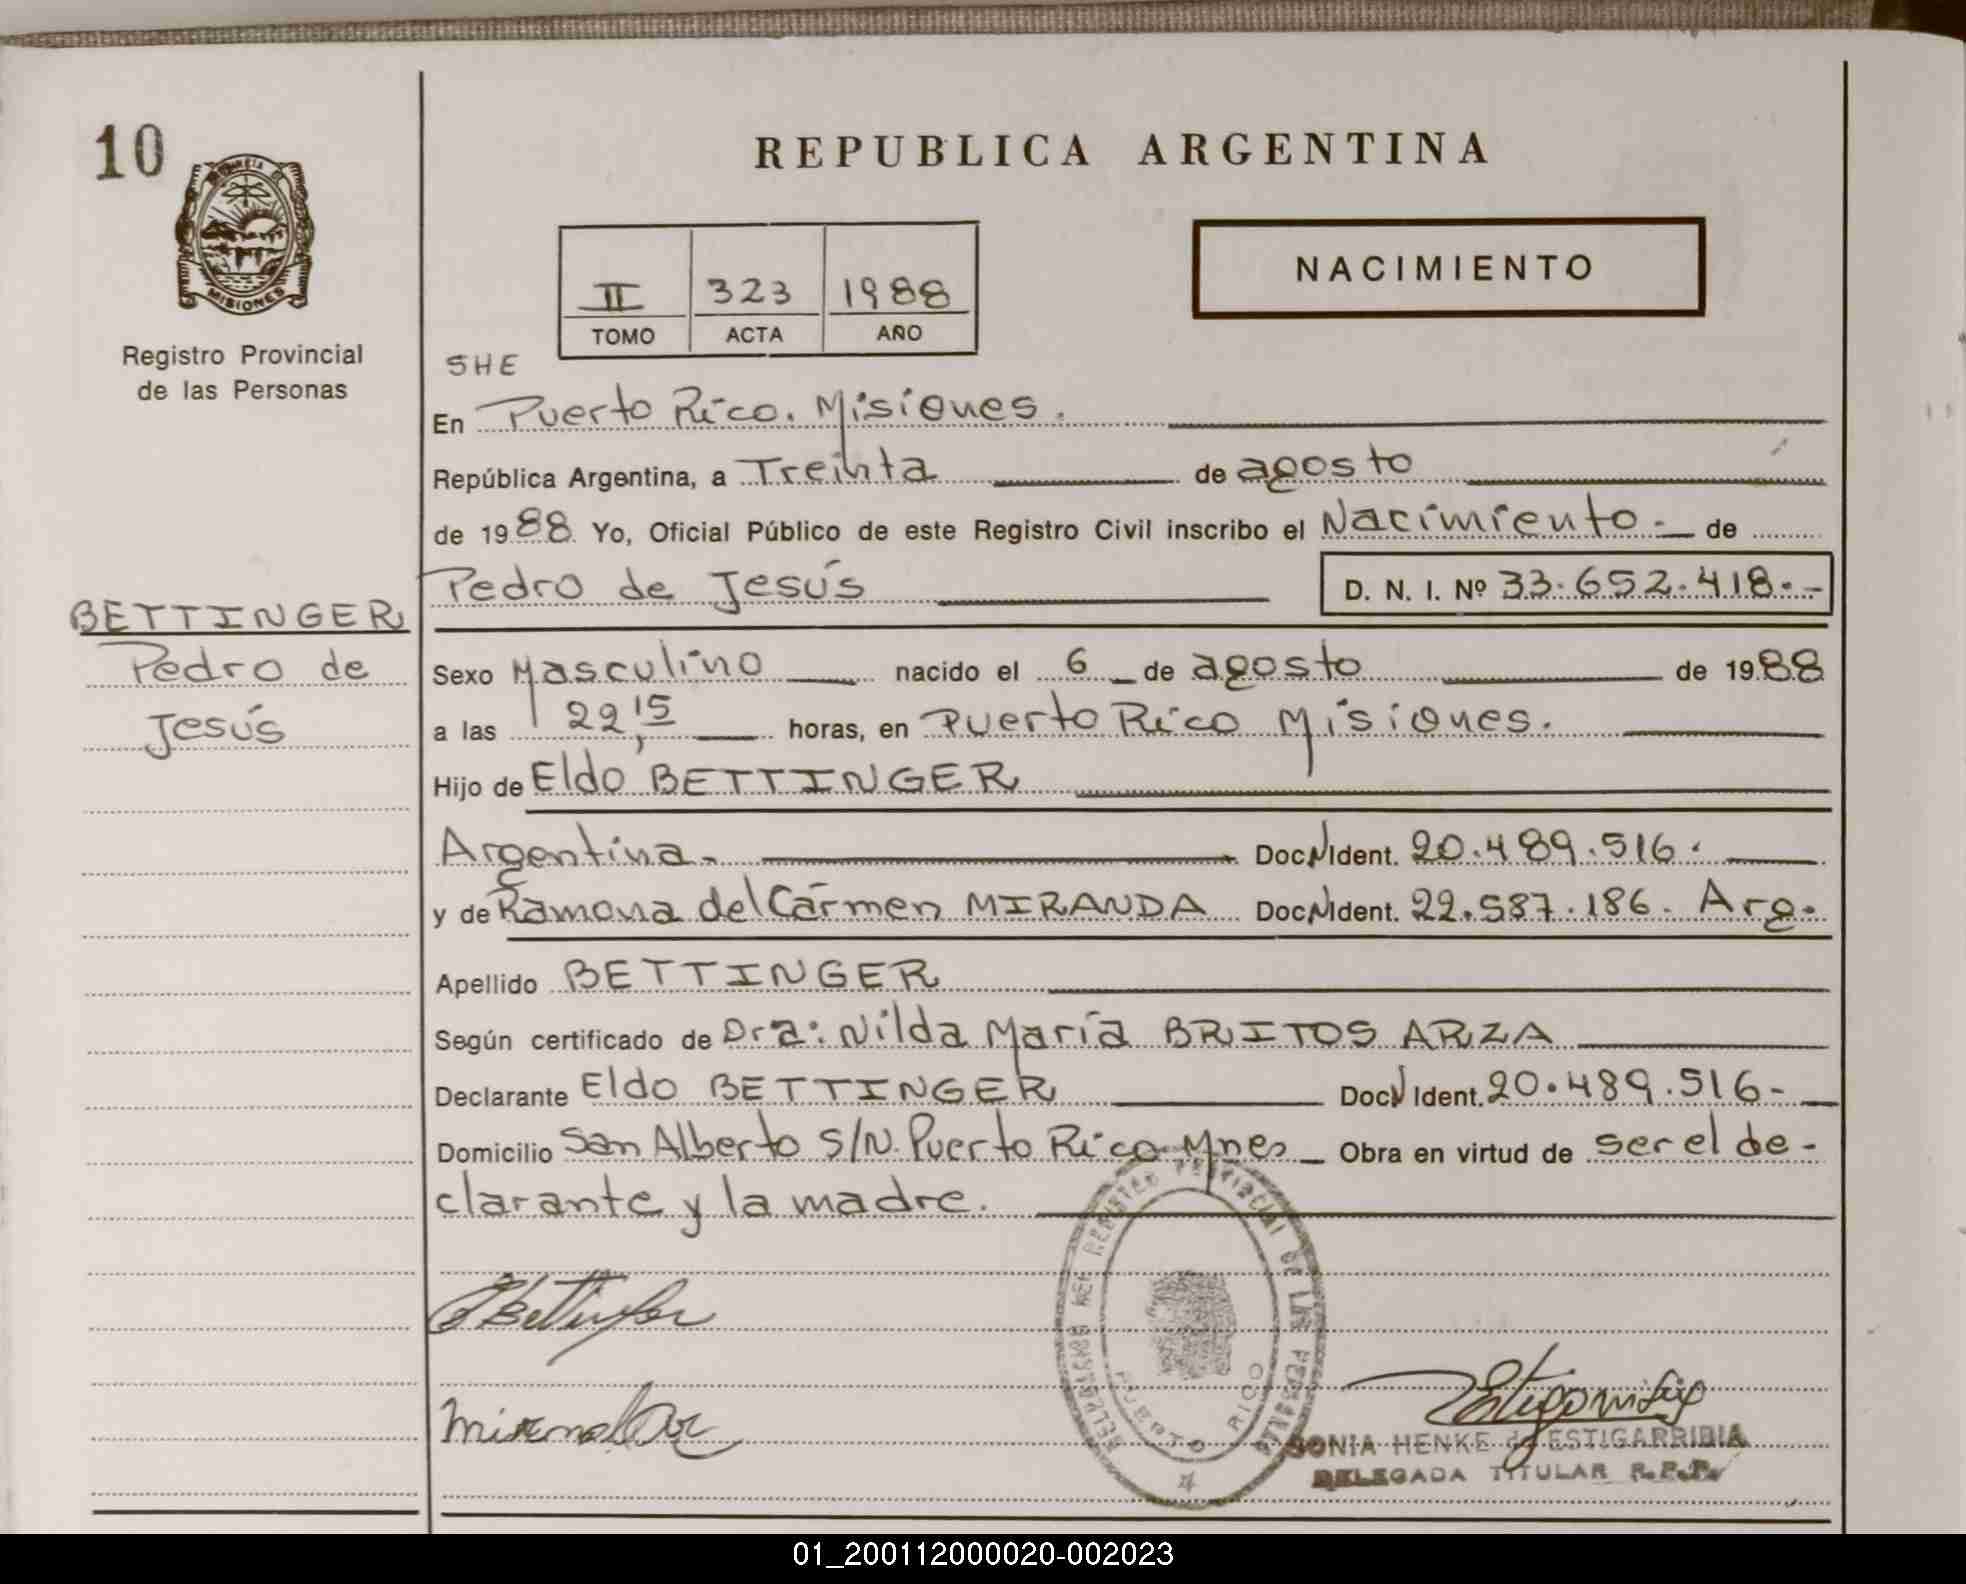 10
MISIONES
Registro Provincial
de las Personas
BETTINGER
Pedro de
Jesús
REPUBLICA ARGENTINA
II 323 1988
TOMO ACTA AÑO
NACIMIENTO
SHE
En Puerto Rico. Misiones.
República Argentina, a Treinta de agosto
de 1988 Yo, Oficial Público de este Registro Civil inscribo el Nacimiento.- de
Pedro de Jesús D. N. I. Nº 33.652.418.-
Sexo Masculino nacido el 6 de agosto de 1988
a las 22,15 horas, en Puerto Rico Misiones.
Hijo de Eldo BETTINGER
Argentina. Doc. N Ident. 20.489.516.
y de Ramona del Cármen MIRANDA Doc. N Ident. 22.587.186. Arg.
Apellido BETTINGER
Según certificado de Dra: Nilda María BRITOS ARZA
Declarante Eldo BETTINGER Doc. N Ident. 20.489.516-
Domicilio San Alberto S/N. Puerto Rico Mnes Obra en virtud de ser el de-
clarante y la madre.
REGISTRO PROVINCIAL DE LAS PERSONAS
PUERTO RICO
SONIA HENKE de ESTIGARRIBIA
DELEGADA TITULAR R.P.P.
01_200112000020-002023